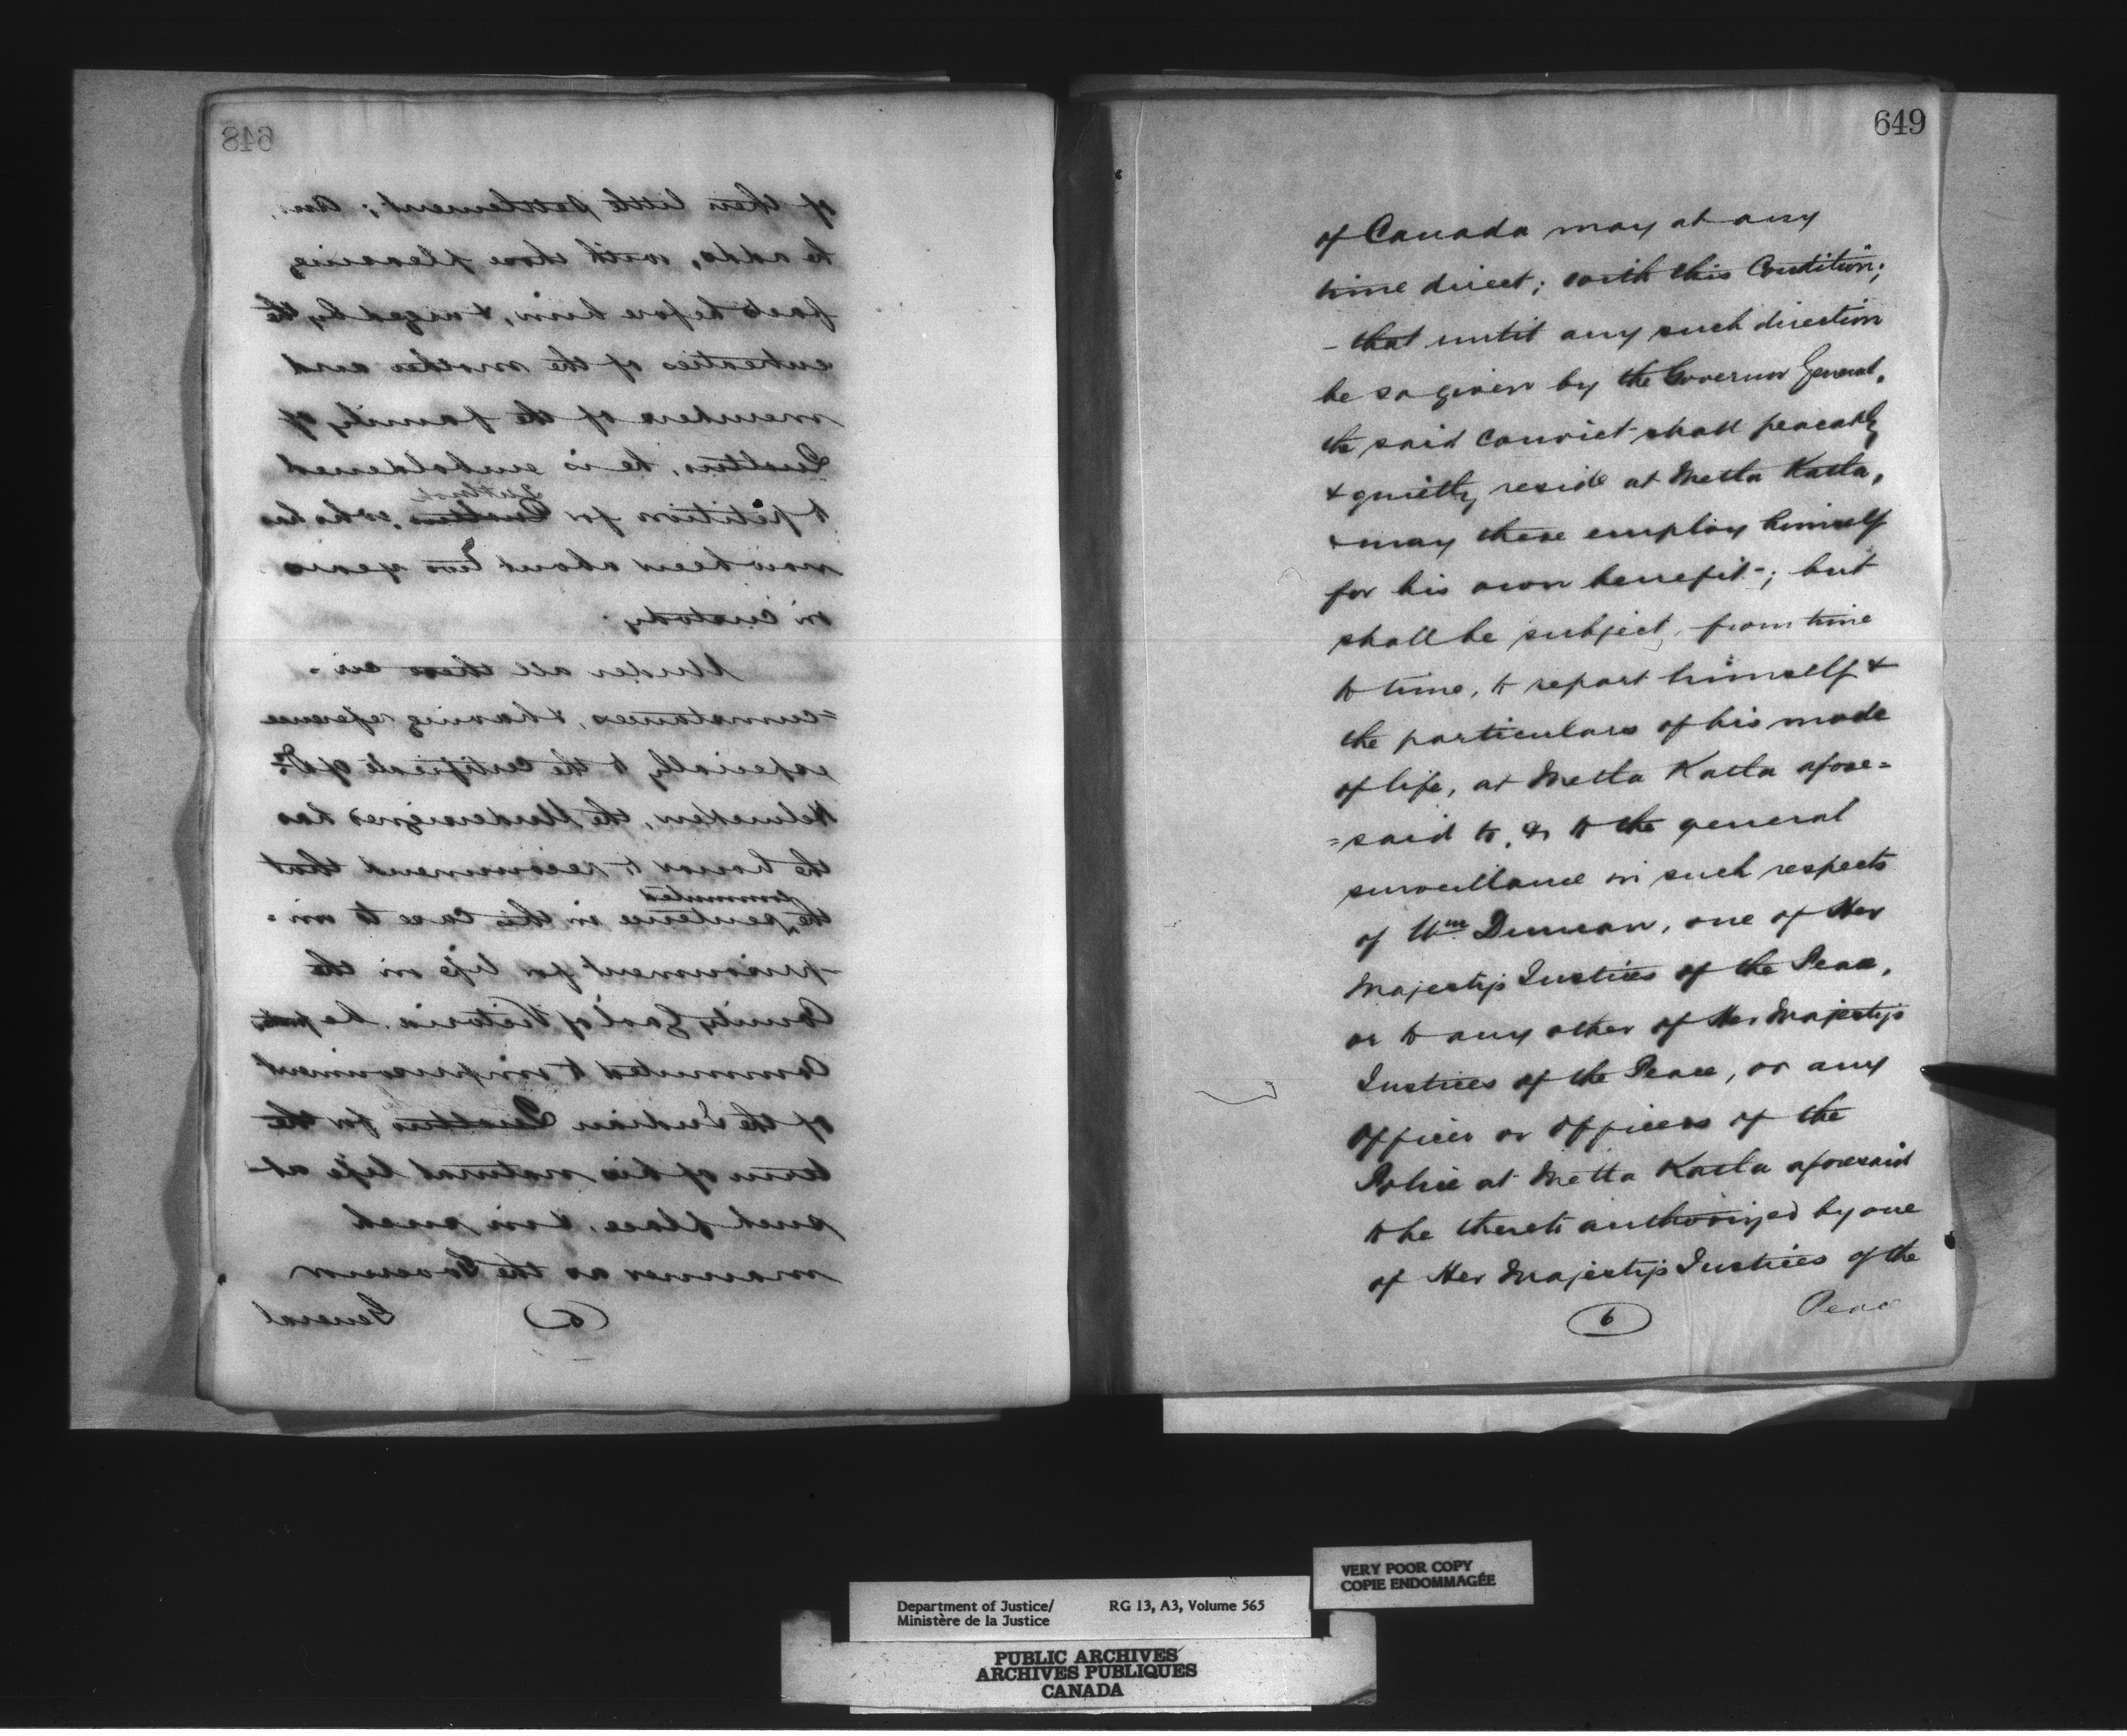 648
of their little settlement; and,
he adds, with these pleasing
facts before him, & urged by the
entreaties of the mother and
members of the family of
Qualtus, he is emboldened
to petition for Qualtus, who has
now been about two years
in custody.
Under all these cir-
=cumstances, & having reference
especially to the certificate of Dr.
Helmcken, the Undersigned has
the honor to recommend that
commuted
the sentence in this case to im-
-prisonment for life in the
County Gaol of Victoria, be
Commuted to imprisonment
of the Indian Qualtus for the
term of his natural life at
such place, & in such
manner as the Governor
(5) General
649
of Canada may at any
time direct; with this Condition;
- that until any such direction
be so given by the Governor General,
the said Convict shall peaceably
& quietly reside at Metla Katla,
& may there employ himself
for his own benefit-; but
shall be subject, from time
to time, to report himself &
the particulars of his mode
of life, at Metla Katla afore=
=said to, & to the general
surveillance in such respects
of Wm Duncan, one of Her
Majesty's Justices of the Peace,
or to any other of Her Majesty's
Justices of the Peace, or any
Officer or Officers of the
Police at Metla Katla aforesaid
to be thereto authorized by one
of Her Majesty's Justices of the
6 Peace
VERY POOR COPY
COPIE ENDOMMAGÉE
Department of Justice/ RG 13, A3, Volume 565
Ministère de la Justice
PUBLIC ARCHIVES
ARCHIVES PUBLIQUES
CANADA